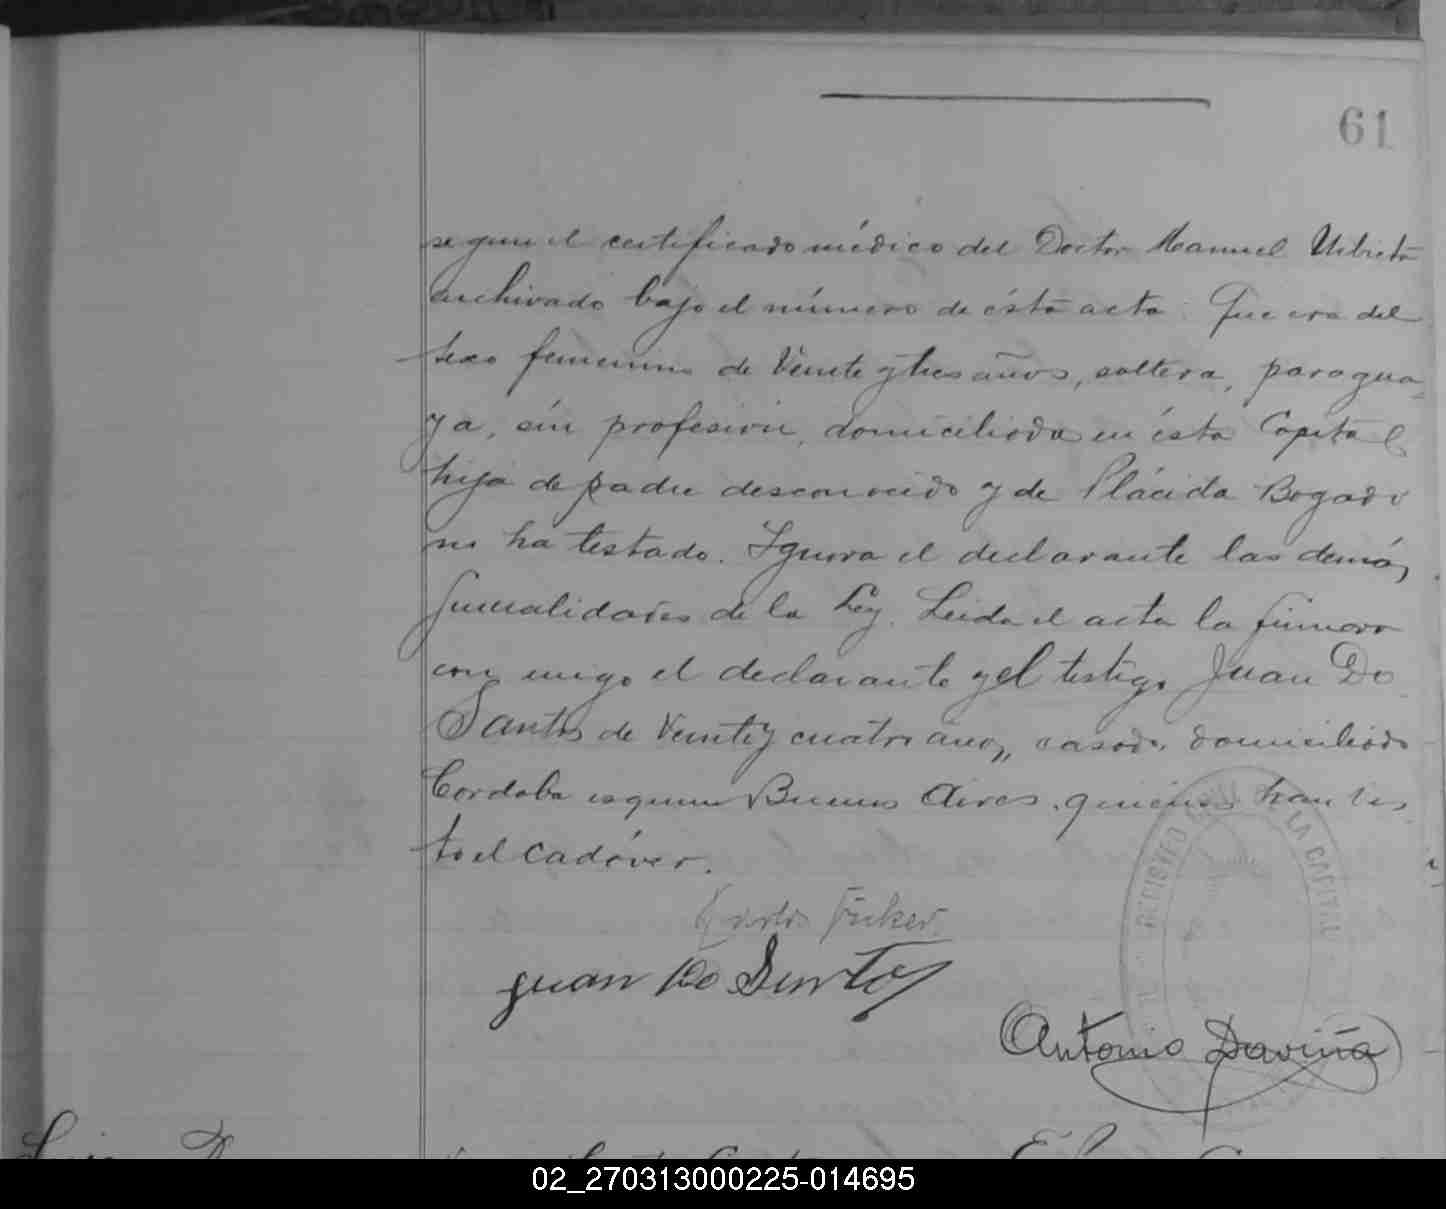 61
segun el certificado médico del Doctor Manuel Urbieta
archivado bajo el número de ésta acta. Que era del
sexo femenino de Veinte y tres años, soltera, paragua-
ya, sin profesion, domiciliada en ésta Capital
hija de padre desconocido y de Plácida Bogado
no ha testado. Ignora el declarante las demás
formalidades de la Ley. Leida el acta la firmaron
con migo el declarante y el testigo Juan Do
Santos de Veinte y cuatro años, casado, domiciliado
Cordoba esquina Buenos Aires, quienes han vis-
to el cadáver.
REGISTRO CIVIL DE LA CAPITAL
Carlos
Juan Do Santos
Antonio Daviña
02_270313000225-014695